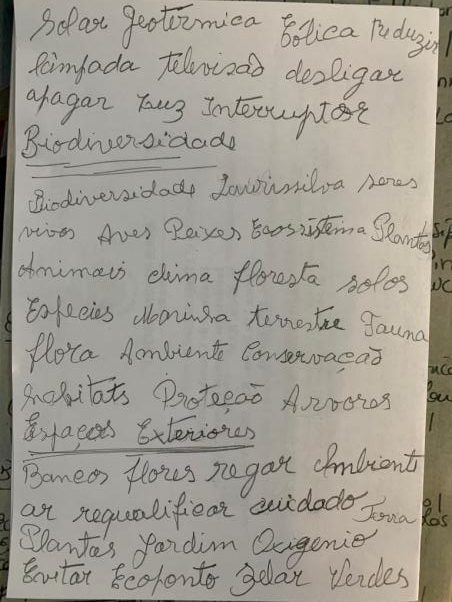 Solar Geotérmica Eólica Reduzir
lâmpada televisão desligar
apagar Luz Interruptor
Biodiversidade
Biodiversidade Laurissilva seres
vivos Aves Peixes Ecossistema Plantas
Animais clima floresta solos
Espécies Marinha terrestre Fauna
flora Ambiente Conservação
habitats Proteção Arvores
Espaços Exteriores
Bancos flores regar Ambiente
ar requalificar cuidado Terra
Plantas Jardim Oxigenio
Evitar Ecoponto Zelar Verdes